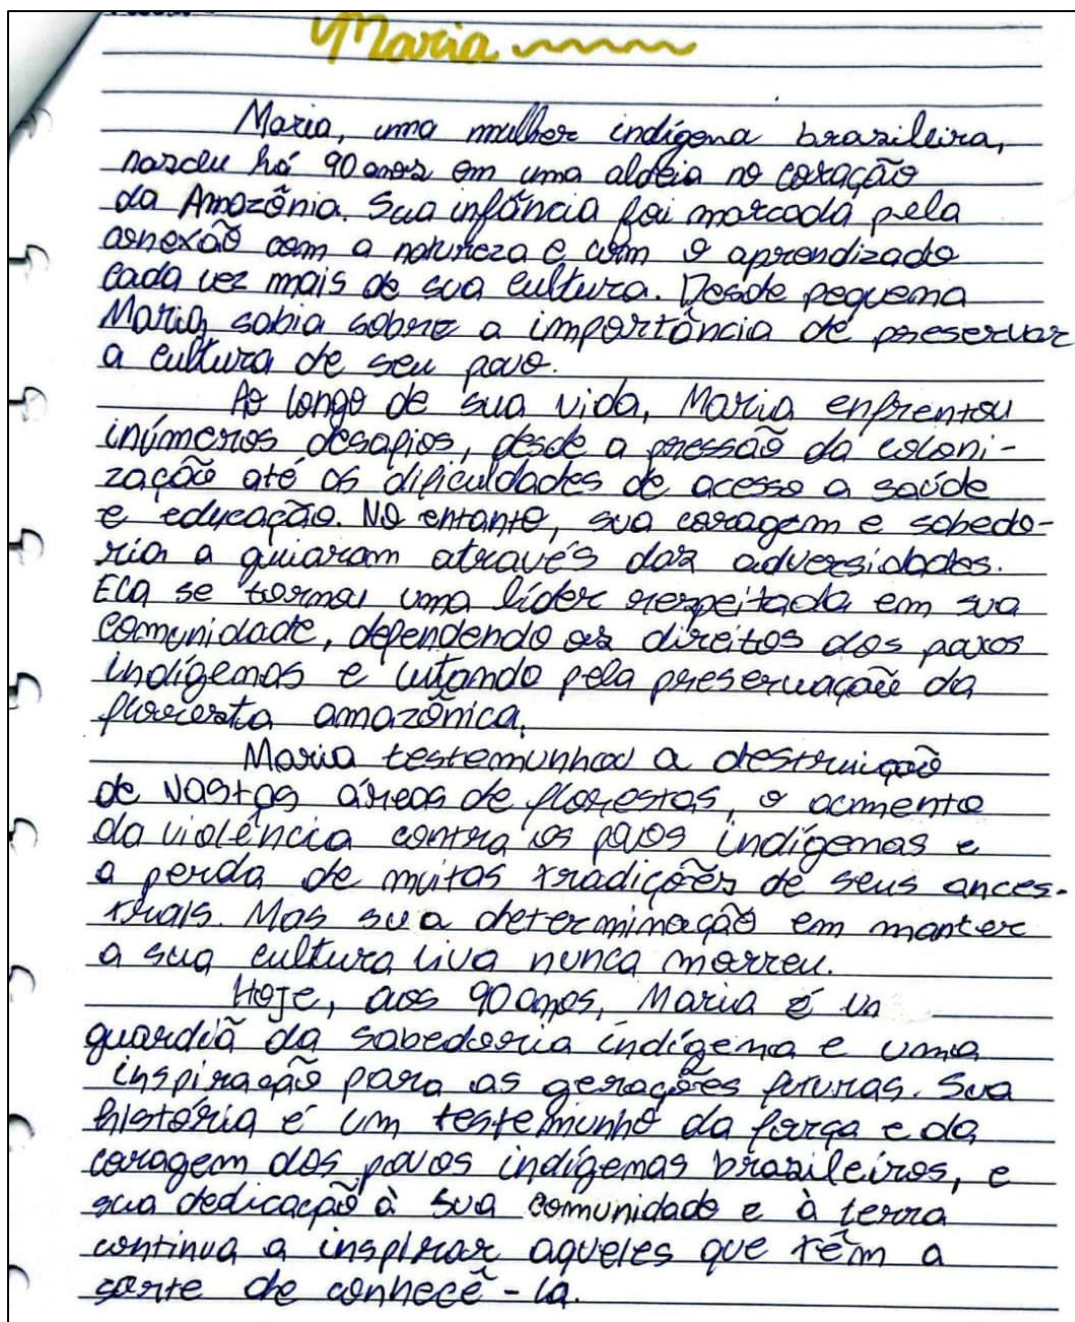 Maria
Maria, uma mulher indígena brasileira,
nasceu há 90 anos em uma aldeia no coração
da Amazônia. Sua infância foi marcada pela
conexão com a natureza e com o aprendizado
cada vez mais de sua cultura. Desde pequena
Maria, sabia sobre a importância de preservar
a cultura de seu povo.
Ao longo de sua vida, Maria enfrentou
inúmeros desafios, desde a pressão da coloni-
zação até as dificuldades de acesso a saúde
e educação. No entanto, sua coragem e sabedo-
ria a guiaram através das adversidades.
Ela se tornou uma líder respeitada em sua
comunidade, defendendo os direitos dos povos
indígenas e lutando pela preservação da
floresta amazônica.
Maria testemunhou a destruição
de vastas áreas de florestas, o aumento
da violência contra os povos indígenas e
a perda de muitas tradições de seus ances-
trais. Mas sua determinação em manter
a sua cultura viva nunca morreu.
Hoje, aos 90 anos, Maria é un
guardiã da sabedoria indígena e uma
inspiração para as gerações futuras. Sua
história é um testemunho da força e da
coragem dos povos indígenas brasileiros, e
sua dedicação à sua comunidade e à terra
continua a inspirar aqueles que têm a
sorte de conhecê-la.